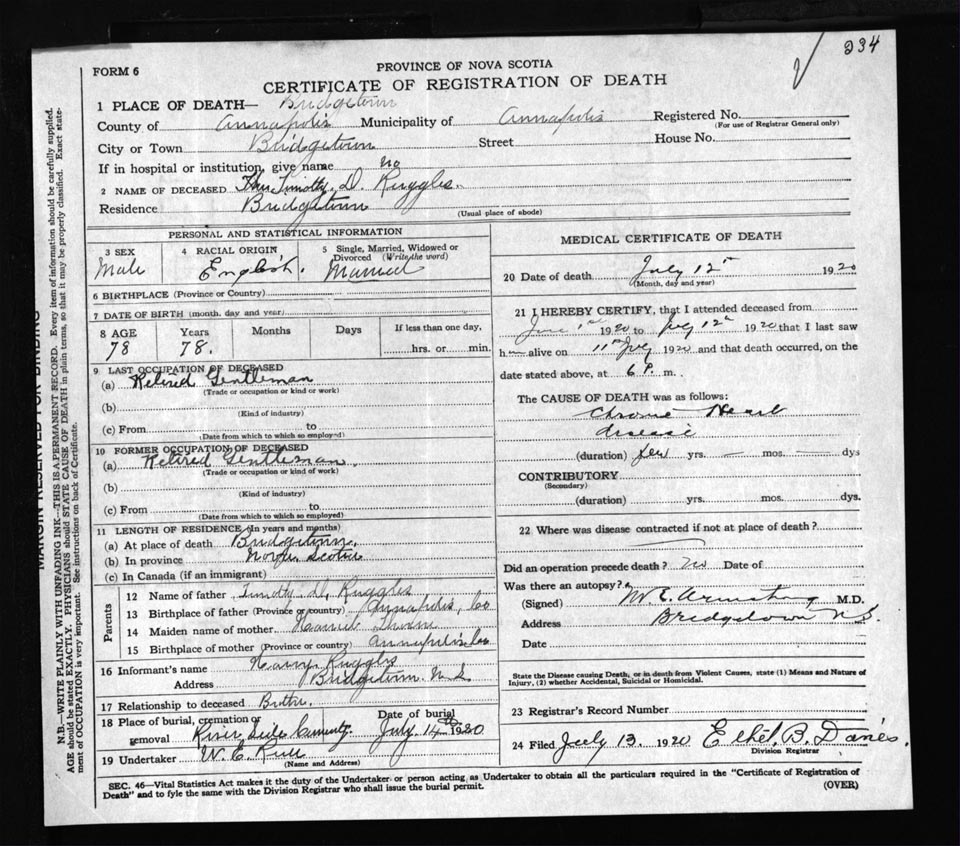 234
FORM 6
PROVINCE OF NOVA SCOTIA
CERTIFICATE OF REGISTRATION OF DEATH
1 PLACE OF DEATH— Bridgetown
County of Annapolis Municipality of Annapolis Registered No.
(For use of Registrar General only)
City or Town Bridgetown Street House No.
If in hospital or institution, give name no
2 NAME OF DECEASED Timothy D. Ruggles.
Residence Bridgetown
(Usual place of abode)
PERSONAL AND STATISTICAL INFORMATION
3 SEX 4 RACIAL ORIGIN 5 Single, Married, Widowed or Divorced (Write the word)
Male English. Married
6 BIRTHPLACE (Province or Country)
7 DATE OF BIRTH (month, day and year)
8 AGE Years Months Days If less than one day,
78 78. hrs. or min.
9 LAST OCCUPATION OF DECEASED
(a) Retired Gentleman
(Trade or occupation or kind or work)
(b)
(Kind of industry)
(c) From to
(Date from which to which so employed)
10 FORMER OCCUPATION OF DECEASED
(a) Retired Gentleman.
(Trade or occupation or kind of work)
(b)
(Kind of industry)
(c) From to
(Date from which to which so employed)
11 LENGTH OF RESIDENCE (In years and months)
(a) At place of death Bridgetown.
(b) In province Nova Scotia
(c) In Canada (if an immigrant)
Parents
12 Name of father Timothy D. Ruggles
13 Birthplace of father (Province or country) Annapolis, Co
14 Maiden name of mother
15 Birthplace of mother (Province or country) Annapolis Co
16 Informant's name Harry Ruggles
Address Bridgetown N.S
17 Relationship to deceased
18 Place of burial, cremation or removal Date of burial
River Side Cemetry. July 14th 1920
19 Undertaker W. E.
(Name and Address)
MEDICAL CERTIFICATE OF DEATH
20 Date of death July 12th 1920
(Month, day and year)
21 I HEREBY CERTIFY, that I attended deceased from
June 1st 1920 to July 12th 1920 that I last saw
h alive on 11th July 1920 and that death occurred, on the
date stated above, at 6 P. m.
The CAUSE OF DEATH was as follows:
Chronic Heart
disease
(duration) few yrs. — mos. — dys
CONTRIBUTORY
(Secondary)
(duration) yrs. mos. dys.
22 Where was disease contracted if not at place of death?
Did an operation precede death? no Date of
Was there an autopsy?
(Signed) M. E. Armstrong M.D.
Address Bridgetown N.S.
Date
State the Disease causing Death, or in death from Violent Causes, state (1) Means and Nature of
Injury, (2) whether Accidental, Suicidal or Homicidal.
23 Registrar's Record Number
24 Filed July 13. 1920 Ethel. B. Danes.
Division Registrar
SEC. 46—Vital Statistics Act makes it the duty of the Undertaker or person acting as Undertaker to obtain all the particulars required in the "Certificate of Registration of
Death" and to fyle the same with the Division Registrar who shall issue the burial permit.
(OVER)
MARGIN RESERVED FOR BINDING
N.B.—WRITE PLAINLY WITH UNFADING INK—THIS IS A PERMANENT RECORD. Every item of information should be carefully supplied.
AGE should be stated EXACTLY. PHYSICIANS should STATE CAUSE OF DEATH in plain terms, so that it may be properly classified. Exact state-
ment of OCCUPATION is very important. See instructions on back of Certificate.